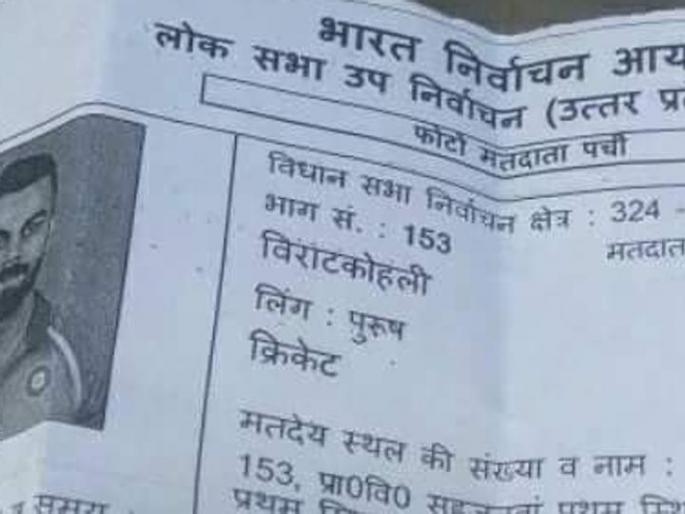 भारत निर्वाचन आय
लोक सभा उप निर्वाचन (उत्तर प्र
फोटो मतदाता पर्ची
विधान सभा निर्वाचन क्षेत्र : 324 -
भाग सं. : 153
मतदात
विराटकोहली
लिंग : पुरूष
क्रिकेट
मतदेय स्थल की संख्या व नाम :
153, प्रा0वि0 प्रथम
प्रथम
समय